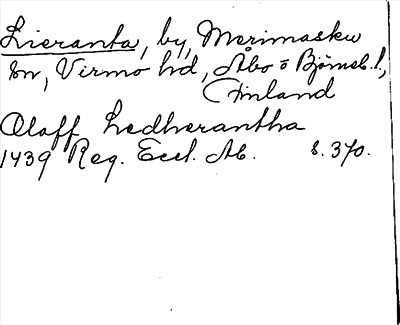 Lieranta, by, Merimasku
sn, Virmo hd, Åbo o Björneb. l.,
Finland
Olaff Ledherantha
1439 Reg. Eccl. Ab. s. 370.